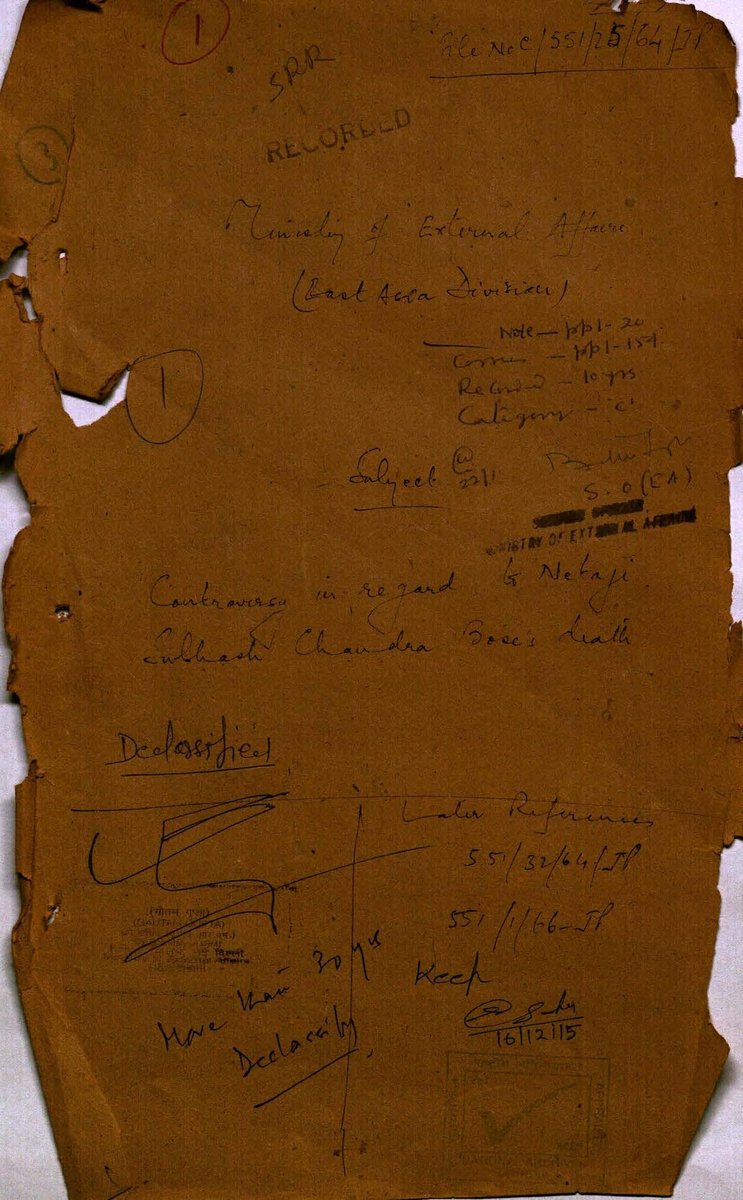 1
File No C/551/25/64/JP
SRR
RECORDED
3
Ministry of External Affairs
(East Asia Division)
Note - pp 1-20
Corres - pp 1-159
Record - 10 yrs
Category - 'C'
1
Subject
22/1
S.O (EA)
MINISTRY OF EXTERNAL AFFAIRS
Controversy in regard to Netaji
Subhash Chandra Bose's death
Declassified
Later References
551/32/64/JP
551/1/66-JP
(गौतम गुप्ता)
(GAUTAM GUPTA)
More than 30 yrs
Declassify
Keep
16/12/15